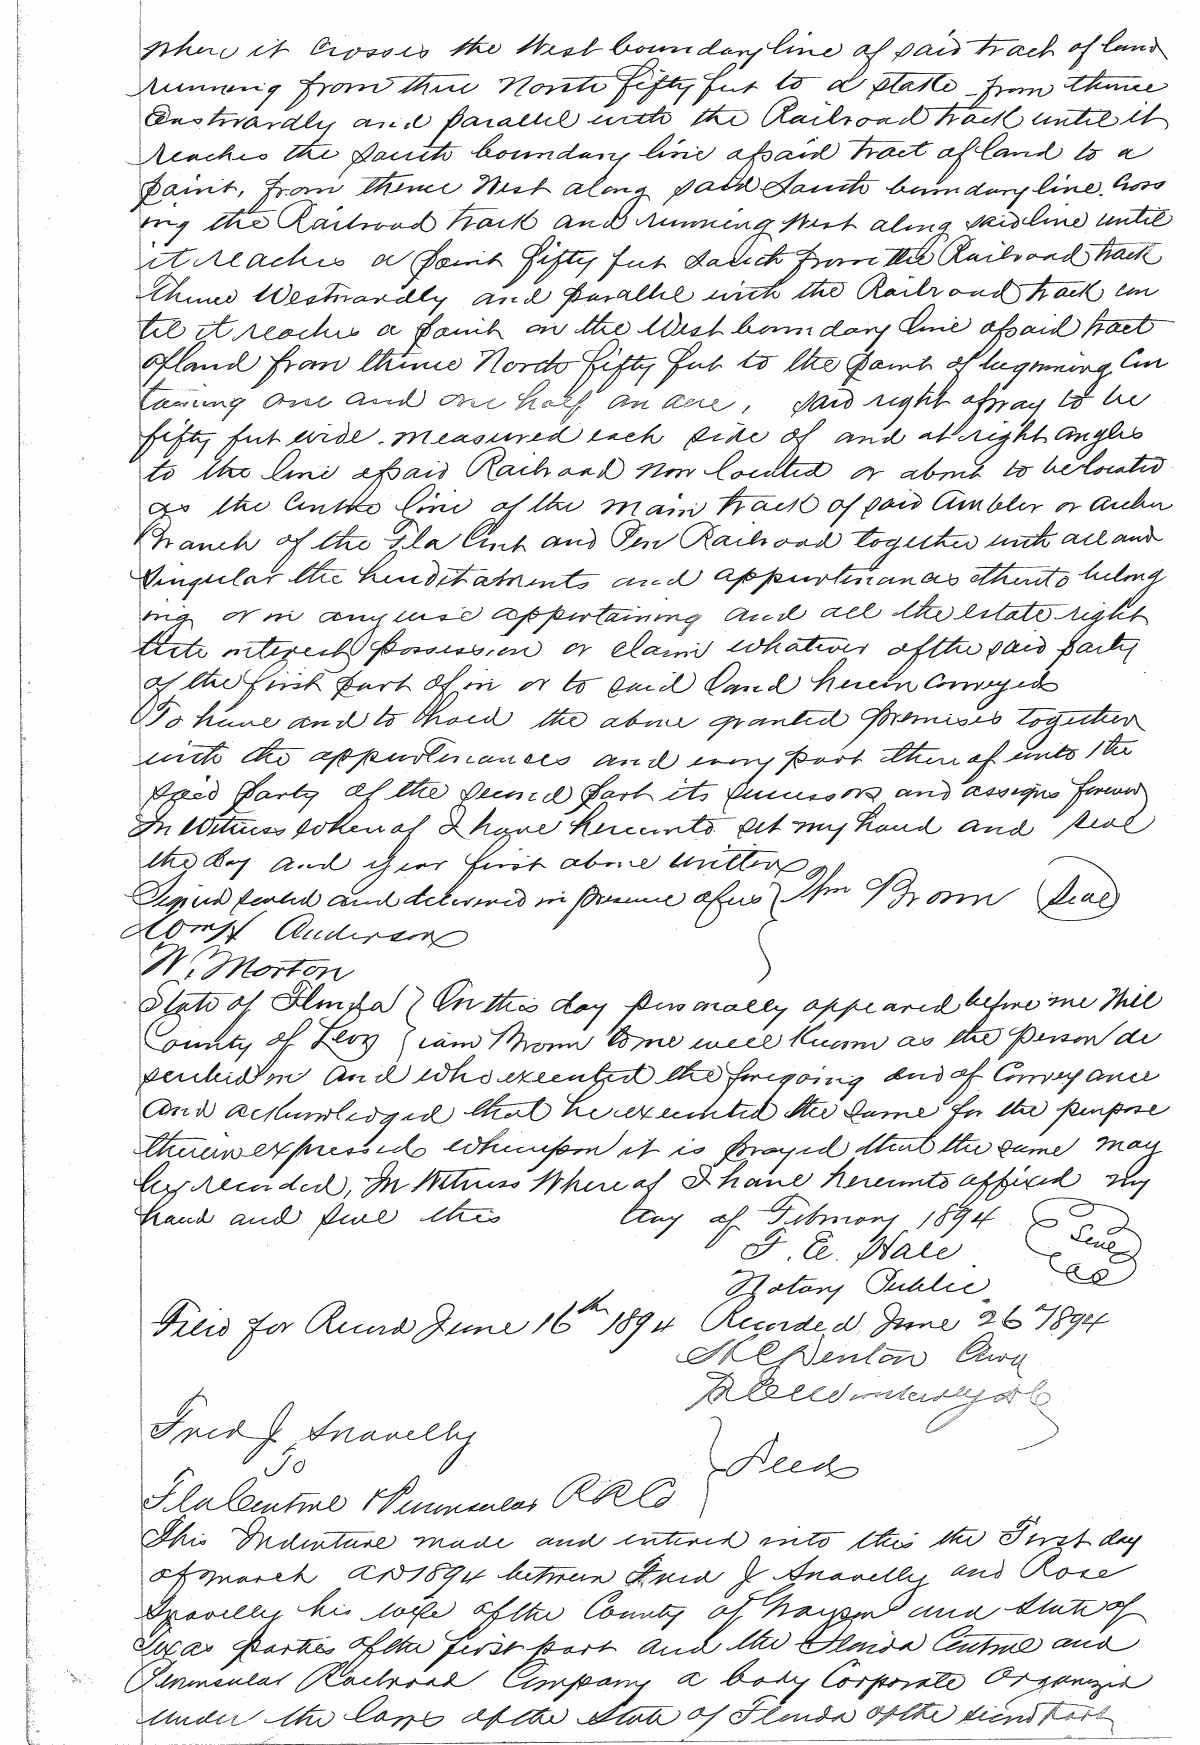 where it crosses the West boundary line of said tract of land
running from thence North fifty feet to a stake from thence
Eastwardly and parallel with the Railroad track until it
reaches the South boundary line of said tract of land to a
point, from thence West along said South boundary line. Cross
ing the Railroad track and running West along said line until
it reaches a point fifty feet South from the Railroad track
Thence Westwardly and parallel with the Railroad track un
til it reaches a point on the West boundary line of said tract
of land from thence North fifty feet to the point of beginning Con
taining one and one half an acre, said right of way to be
fifty feet wide. measured each side of and at right angles
to the line of said Railroad now located or about to be located
as the Centre line of the main track of said Ambler or Archer
Branch of the Fla Cent and Pen Railroad together with all and
Singular the hereditaments and appurtenances thereto belong
ing or in any use appertaining and all the estate right
title interest possession or claim whatever of the said party
of the first part of in or to said land herein conveyed
To have and to hold the above granted premises together
with the appurtenances and every part thereof unto the
said party of the second part its successors and assigns forever
In Witness whereof I have hereunto set my hand and seal
the day and year first above written
Signed sealed and delivered in presence of us } Wm Brown (Seal)
Anderson
W. Morton
State of Florida } On this day personally appeared before me Will
County of Levy } iam Brown to me well known as the person de
scribed in and who executed the foregoing deed of Conveyance
and acknowledged that he executed the same for the purpose
therein expressed whereupon it is prayed that the same may
be recorded, In Witness Whereof I have hereunto affixed my
hand and seal this day of February 1894
F. E. Hale Seal
Notary Public
Filed for Record June 16th 1894 Recorded June 26th 1894
Denton Clerk
Fred J Snavelly
To } Deed
Fla Central & Peninsular R R Co
This Indenture made and entered into this the First day
of March AD 1894 between Fred J Snavelly and Rose
Snavelly his wife of the County of Grayson and State of
Texas parties of the first part and the Florida Central and
Peninsular Railroad Company a body Corporate Organized
under the laws of the State of Florida of the second part